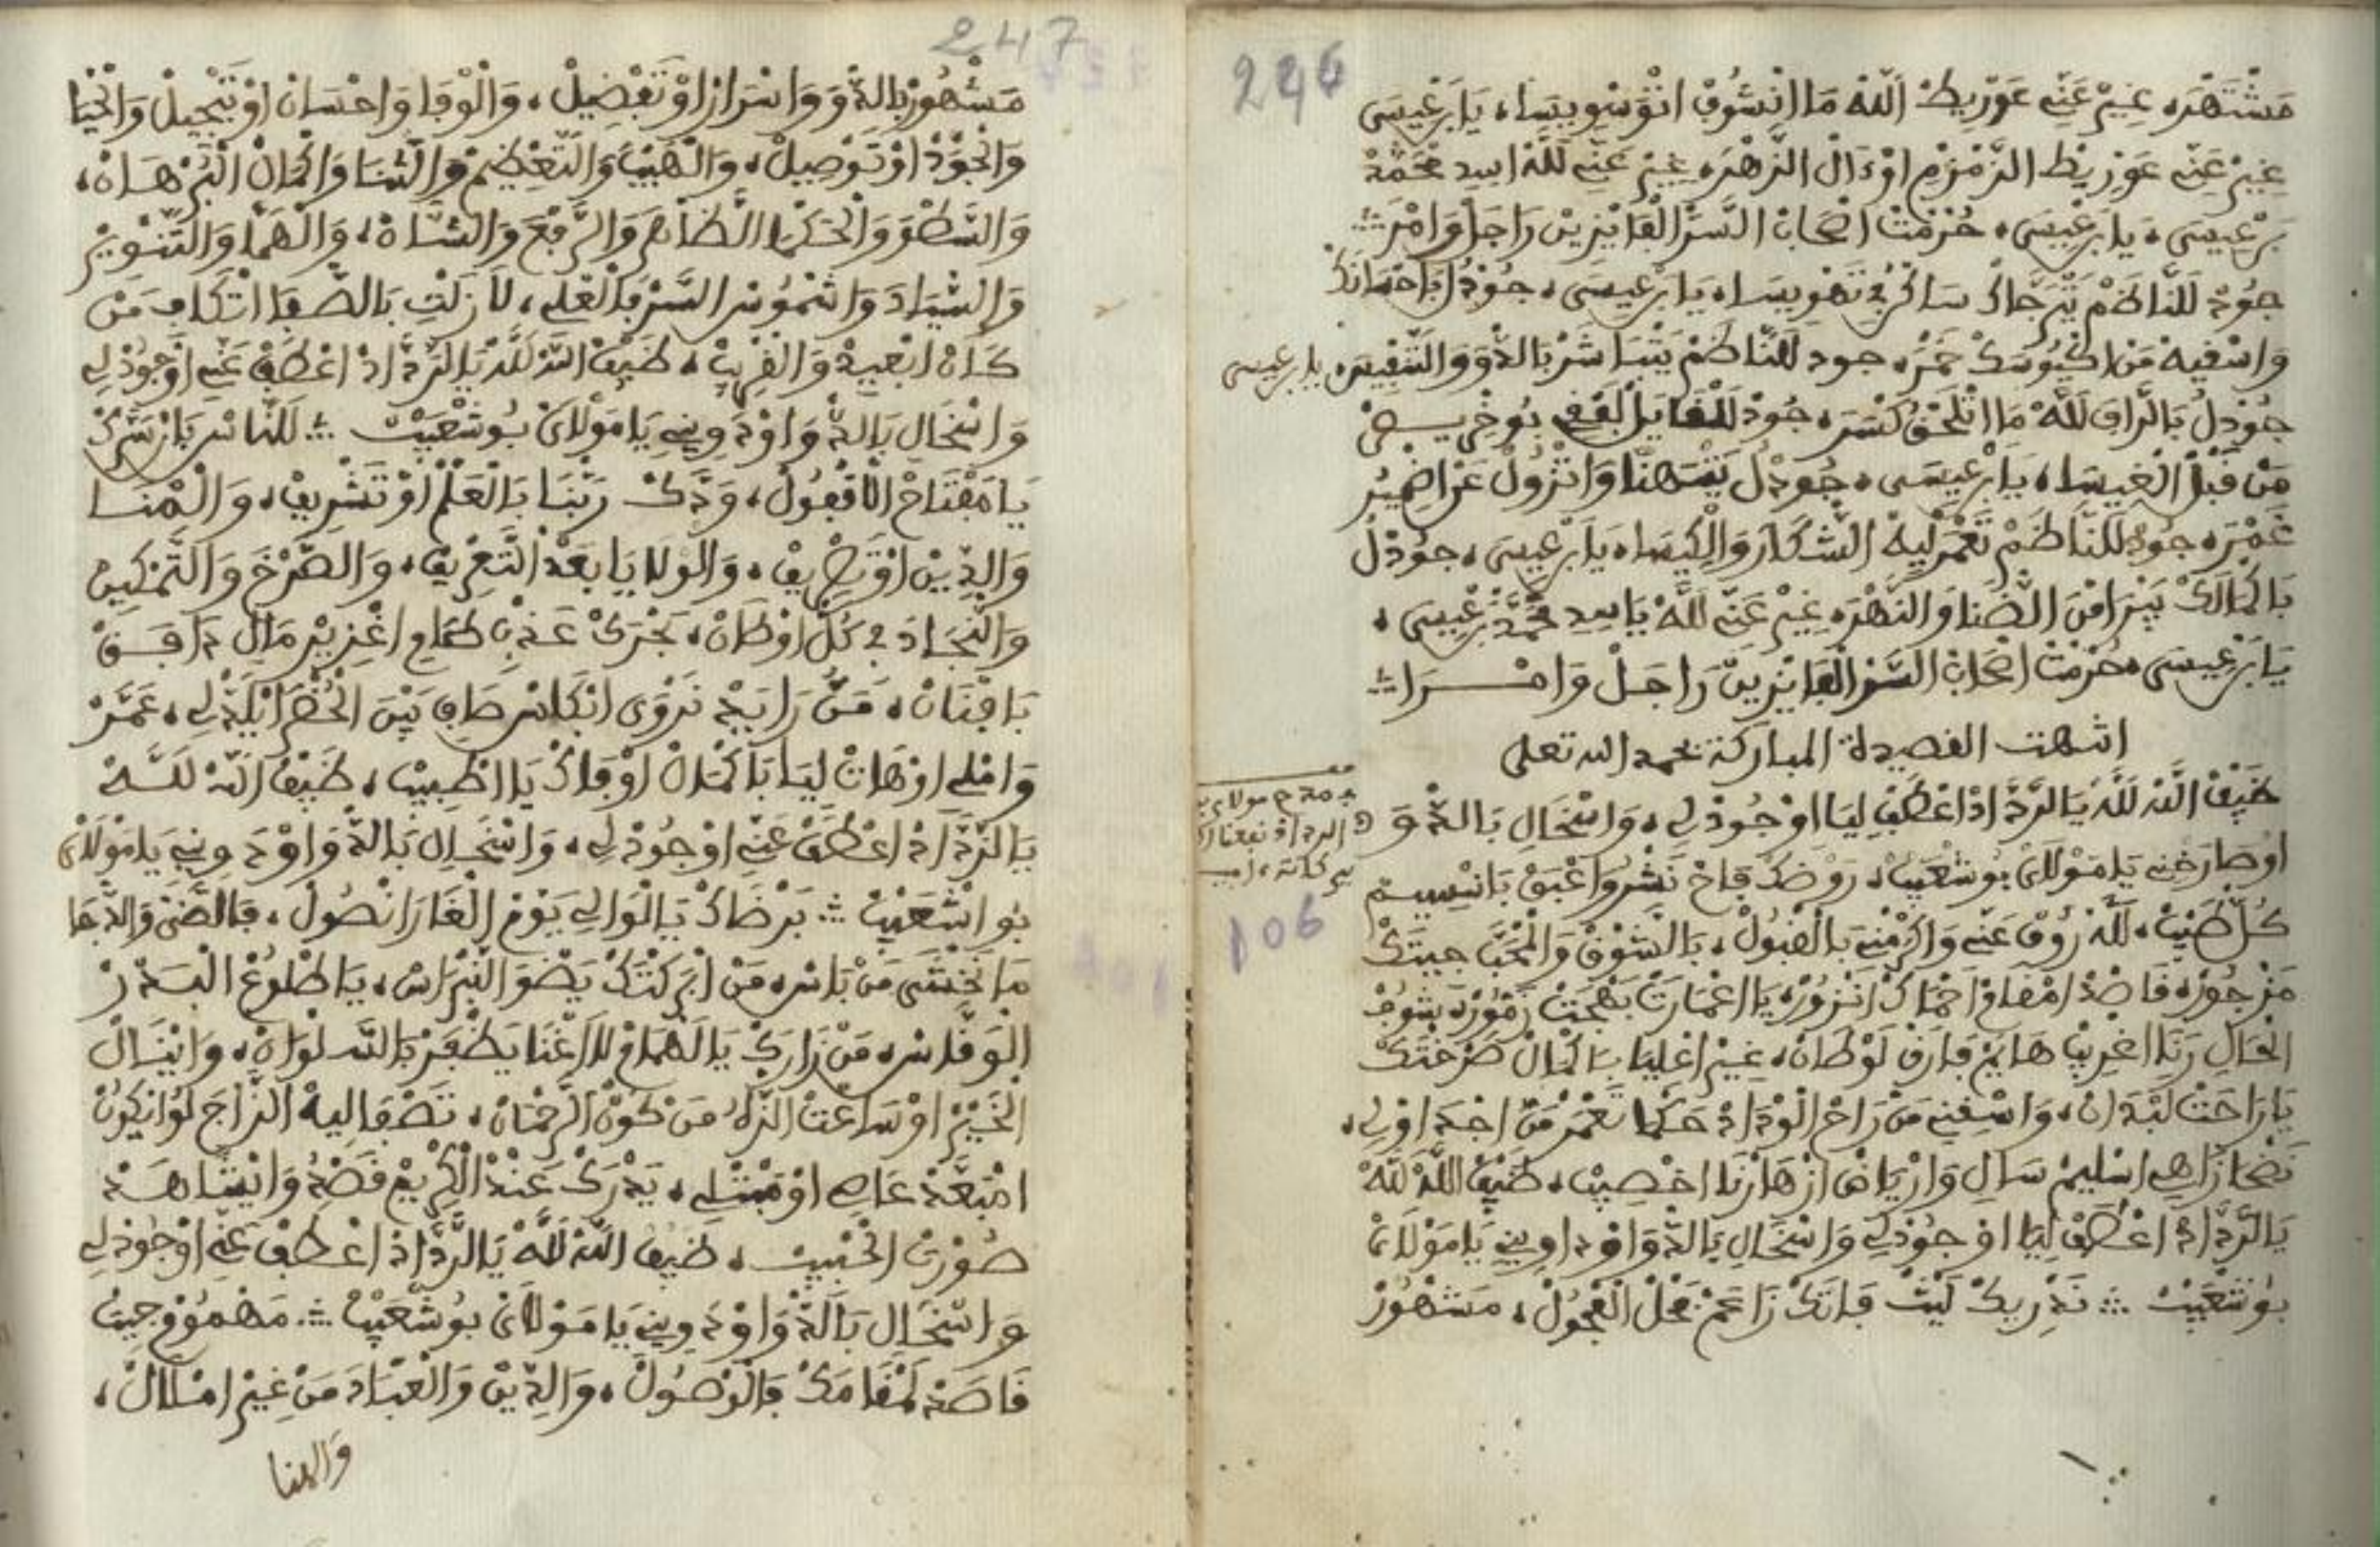 246
مَشْتَهْرَ، غِيرْ عَنِّي عَوْرِيطْ اللَّهْ مَا انْشُوفْ انْقَوْسْ وِيسَا، يَا بَرْعِيسَى
غِيرْ عَنِّي عَوْرِيطْ الزَّمْزَمْ اوْءَالْ الزَّهْرَ، غِيرْ عَنِّي لَلَّهْ اسِيدِ مْحَمَّدْ
بَرْعِيسَى، يَا بَرْعِيسَى، حُرْمَتْ اصْحَابْ السَّرّْ الْفَايْزِينْ رَاجَلْ وَامْرَ
جُودْ لَلنَّاظَمْ يَتْرَجَّاكْ سَاكَنْ فِي تَهْوِيسَا، يَا بَرْعِيسَى، جُودْ لُ بَاحْسَانَكْ
وَاسْقِيهْ مَنْ اكْيُوسَكْ خَمْرَ، جود لَلنَّاظَمْ يَتْبَاشَرْ بَالدَّوْ وَالتَّنْفِيسَ، يا برعيسى
جُودْ لُ بَالرَّاقِ لَلَّهْ مَا انْلَحْقُ كَسْرَ، جُودْ لَلْفَايَزْ لَفْقِي بُوخْرِيـصْ
مَنْ قَبْلْ الْغِيسَا، يَا بَرْعِيسَى، جُودْ لُ يَتْهَنَّا وَاتْزُولْ عَنْ اضْمِيرُ
غَمْرَ، جُودْ لَلنَّاظَمْ تَعْمَرْ لِيهْ الشَّكَارَ وَالْكِيسَا، يَا بَرْعِيسَى، جُودْ لُ
بَاكْمَالَكْ يَبْرَا مْنَ الضّْنَا وَالنَّهْرَ، غِيرْ عَنِّي لَلَّهْ يَا سِيدِ مْحَمَّدْ بَرْعِيسَى،
يَا بَرْعِيسَى، حُرْمَتْ اصْحَابْ السَّرّْ الْفَايْزِينْ رَاجَلْ وَامْـرَا
انتهت القصيدة المباركة بحمد الله تعلى
ضَيْفْ اللَّهْ لَلَّهْ يَا الرَّدَّادْ اعْطَفْ لِيَا اوْ جُودْ لِي، وَاسْخَالِ بَالدّْوَ
اوْصَارَخْنِي يَا مَوْلَايْ بُوشْعَيْبْ، رَوْضَكْ فَاحْ نَشْرُ وَاعْبَقْ بَانْسِيمْ
كُلّْ طَيْبْ، لَلَّهْ رُوفْ عَنِّي وَاكْرَمْنِي بَالْقْبُولْ، بَالشَّوْقْ وَالْمْحَبَّ جِيتَكْ
مَزْجُورْ، قَاصْدْ امْقَامْ احْمَاكْ انْزُورْ، يَا اعْمَارَتْ بَهْجَتْ زَمُّورْ، شُوفْ
الْحَالِ رَنَا اغْرِيبْ هَايَمْ فَارَقْ لَوْطَانْ، غِيرْ اعْلِيَا بَاكْمَالْ صَرْخْتَكْ
يَا رَاحَتْ لَبْدَانْ، وَاسْقِنِي مَنْ رَاحْ الْوْدَادْ حَكْمَا نَعْمَرْ مَنْ اجْدَاوْلِي،
نَضْحَا زَاهِي اسْلِيمْ سَالِ وَارْيَاضْ ازْهَارْنَا اخْصِيبْ، ضَيْفْ اللَّهْ لَلَّهْ
يَا الرَّدَّادْ اعْطَفْ لِيَا اوْ جُودْ لِي وَاسْخَالِ بَالدّْوَ اوْدَاوِينِي يَا مَوْلَايْ
بُوشْعَيْبْ نَدْرِيكْ لَيْتْ فَاتَكْ زَاعَمْ فَحْلْ الْفْحُولْ، مَشْهُورْ
106
247
مَشْهُورْ بَالدّْوَ وَاسْرَارْ اوْ تَفْضِيلْ، وَالْوْفَا وَاحْسَانْ اوْ تَبْجِيلْ وَالْحْيَا
وَالْجُودْ اوْ تَوْصِيلْ، وَالْهَيْبَ وَالتَّعْظِيمْ وَالثّْنَا وَاكْمَالْ الْبُرْهَانْ،
وَالسَّطْوَ وَالْحَكْمَا الظَّاهْرَ وَالرَّفْعَ وَالشَّانْ، وَالْهَمَّا وَالتَّنْوِيرْ
وَالسّْيَادَ وَاشْمُوسْ السَّرّْ بَالْعْلِي، لَا زَلْتِ بَالصّْفَا اتْكَافِ مَنْ
كَانْ ابْعِيدْ وَالْقْرِيبْ، ضَيْفْ اللَّهْ لَلَّهْ يَا الرَّدَّادْ اعْطَفْ عَنِّي اوْ جُودْ لِي
وَاسْخَالِ بَالدّْوَ اوْدَاوِينِي يَا مَوْلَايْ بُوشْعَيْبْ لَلنَّاسْ بَانْ سَرَّكْ
يَا مَفْتَاحْ الْاقْفُولْ، وَدَّكْ رَبْنَا بَالْعَلْمْ اوْ تَشْرِيفْ، وَالْهْنَا
وَالدِّينْ اوْ تَصْرِيفْ، وَالْوْلَايَا بَعْدْ التَّعْرِيفْ، وَالصَّرْخَ وَالتَّمْكِينْ
وَالنّْجَادَ فِي كُلّْ اوْطَانْ، بَحْرَكْ عَذْبْ طَامِ اغْزِيرْ مَالِ دَافَـقْ
بَافْنَانْ، مَنُّ رَا بَدّْ نَرْوَى ابْكَاسْ صَافِ بَيْنْ الْحُضْرَا يَلْدْلِي، عَمَّرْ
وَامْلِي اوْهَاتْ لِيَا بَاكْمَالْ اوْفَاكْ يَا اطْبِيبْ، ضَيْفْ اللَّهْ لَلَّـهْ
يَا الرَّدَّادْ اعْطَفْ عَنِّي اوْ جُودْ لِي، وَاسْخَالِ بَالدّْوَ اوْدَاوِينِي يَا مَوْلَايْ
بُواشْعَيْبْ بَرْضَاكْ يَا الْوَالِي يَوْمْ الْغَارَا نْصُولْ، فَالضّْحَى وَالدّْجَا
مَا نَخْشَى مَنْ بَاسْ، مَنْ ابْرَكْتَكْ يَضْوَ النَّبْرَاسْ، يَا طْلُوعْ الْبَـدْرْ
الْوَقَّاسْ، مَنْ زَارَكْ يَا الْهْمَامْ لَلَّاغْنَا يَظْفَرْ بَالسَّلْوَانْ، وَايْنَالْ
الْخَيْرْ اوْ سَاعَتْ الزّْلُ مَنْ كُونْ الرَّحْمَانْ، تَصْفَا لِيهْ الرَّاحَ لَوْ ايْكُونْ
امْبَعَّدْ عَاصِي اوْ مَبْتْلِي، يَدْرَكْ عَنْدْ الْكْرِيمْ قَصْدُ وَايْشَاهَـدْ
صُورْتْ الْحْبِيبْ، ضَيْفْ اللَّهْ لَلَّهْ يَا الرَّدَّادْ اعْطَفْ عَنِّي اوْ جُودْ لِي
وَاسْخَالِ بَالدّْوَ اوْدَاوِينِي يَا مَوْلَايْ بُوشْعَيْبْ مَضْمُومْ جِيتْ
قَاصَدْ لَمْقَامَكْ بَالْوْصُولْ، وَالدِّينْ وَالْعْبَادَ مَنْ غِيرْ امْلَالْ،
والهنا